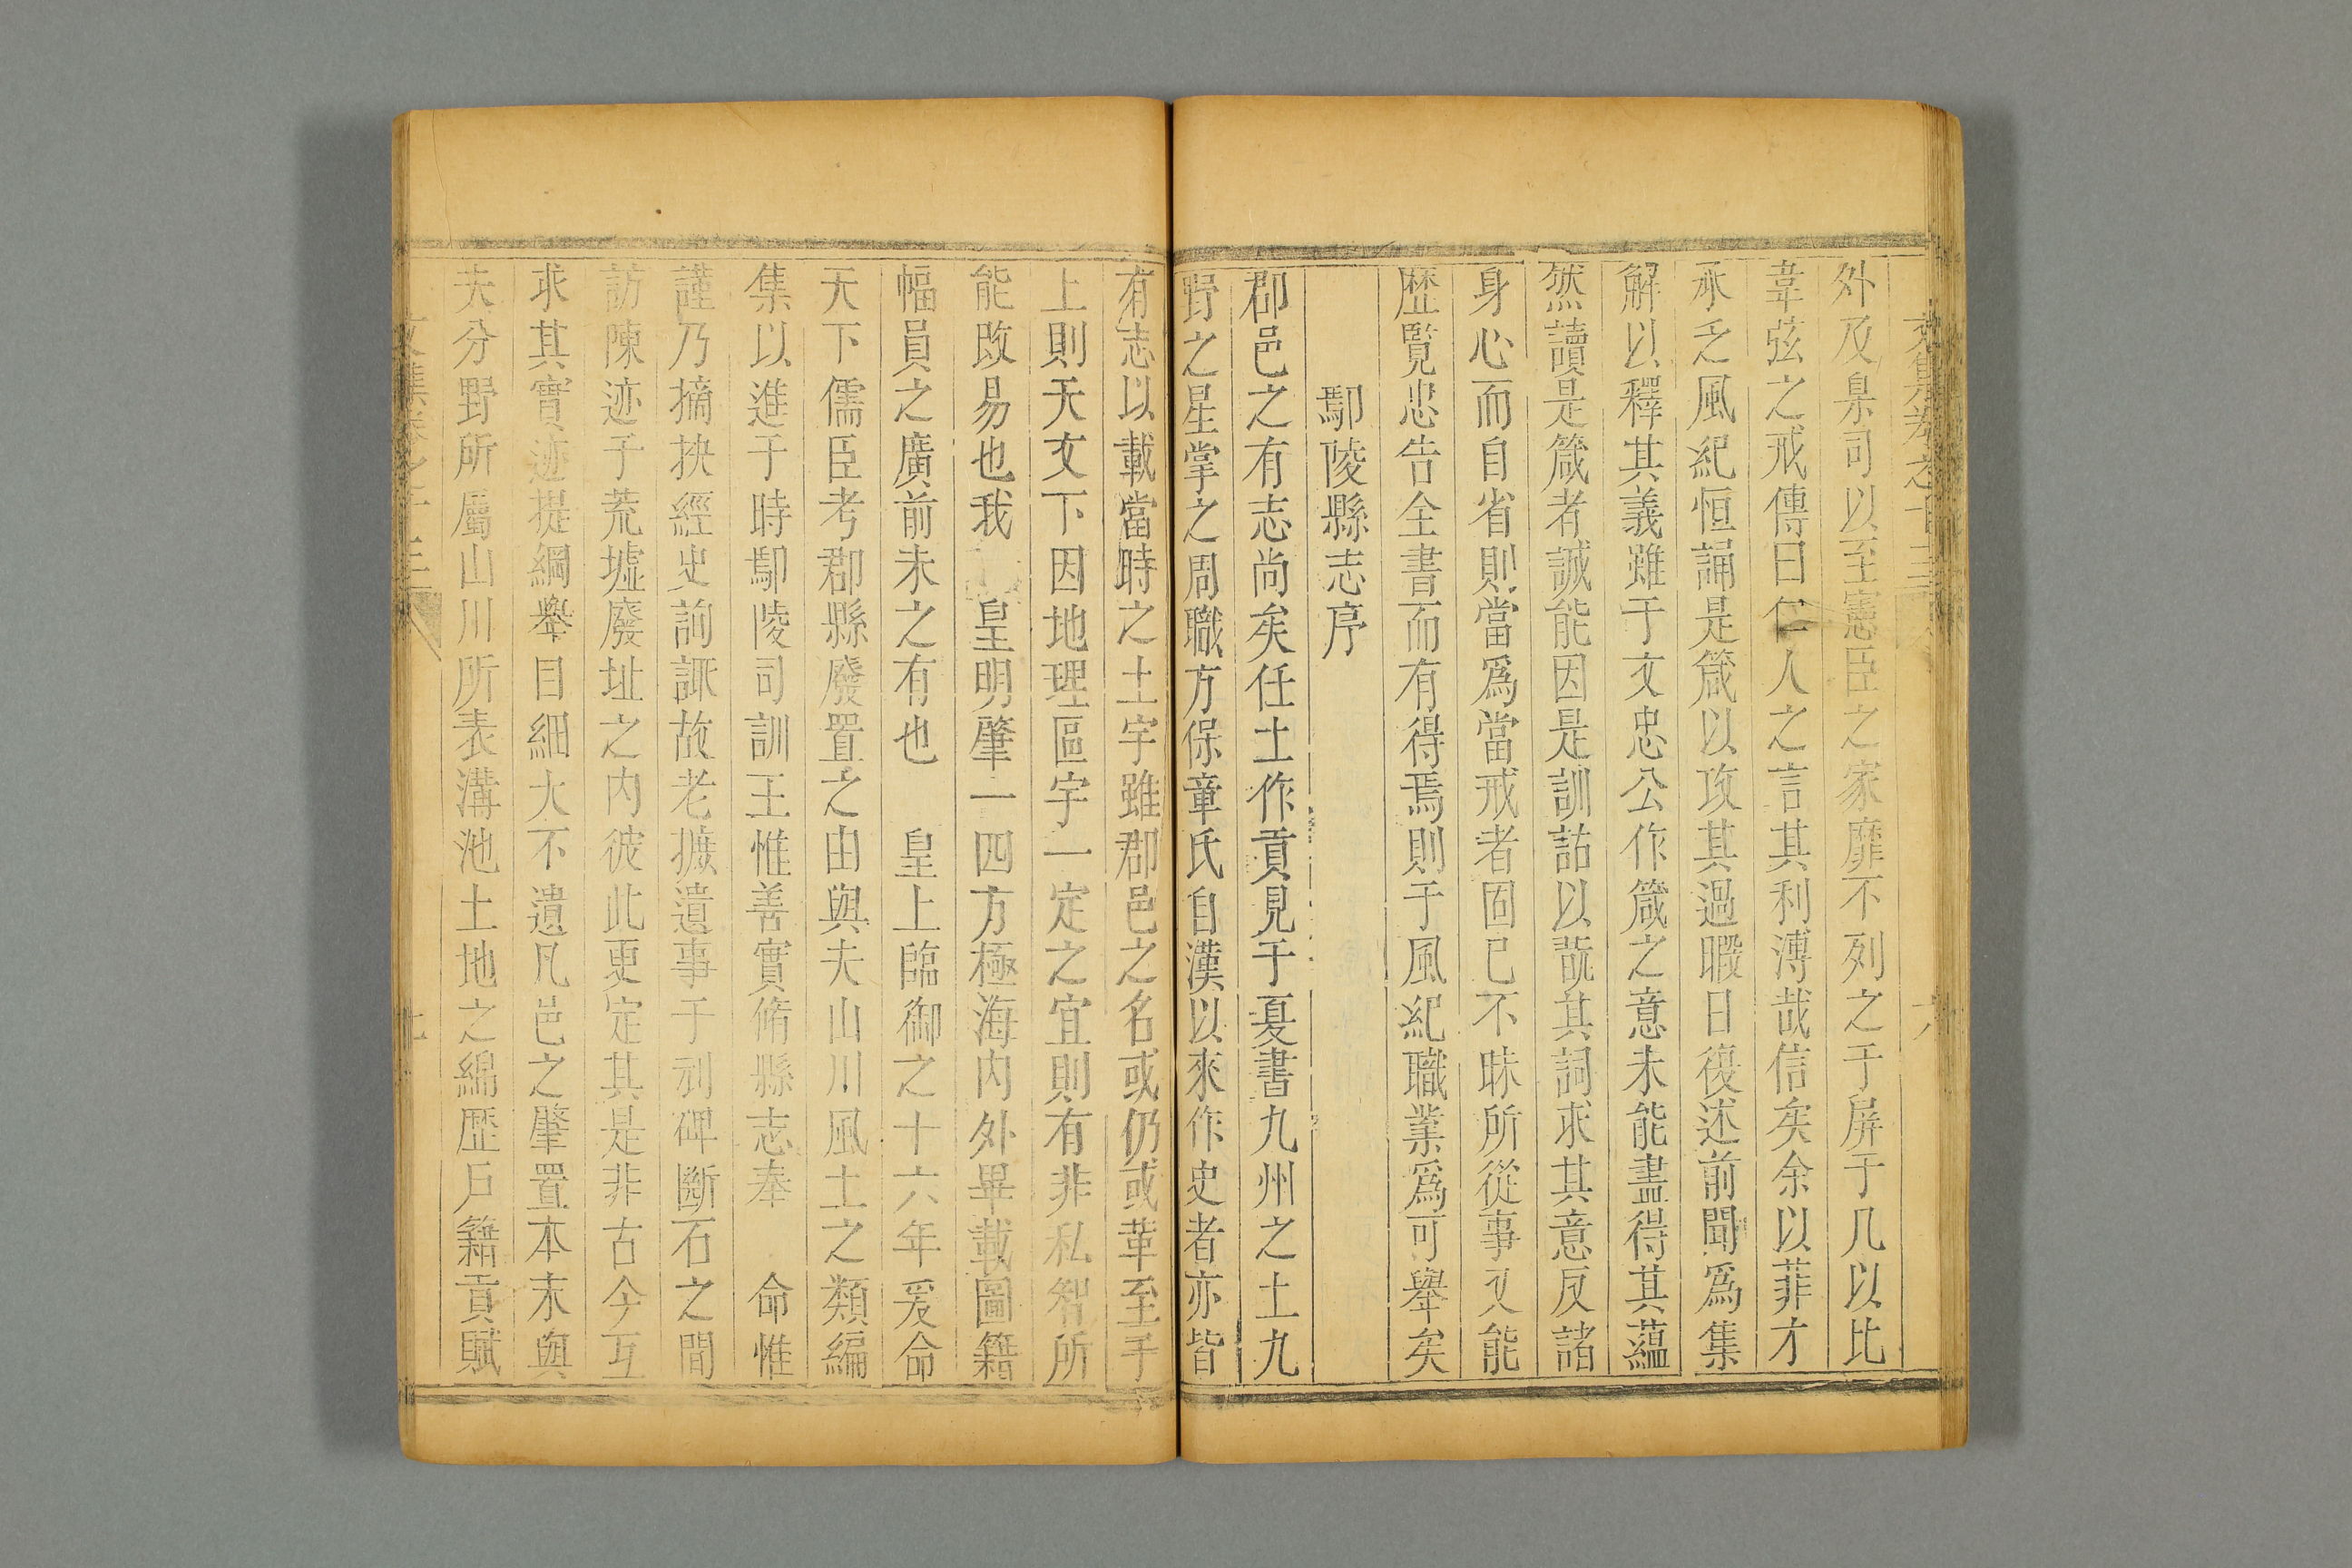 文集卷之十三
六
外及臬司以至憲臣之家靡不列之于屏于几以比
韋弦之戒傳曰仁人之言其利溥哉信矣余以菲才
承乏風紀恒誦是箴以攻其過暇日復述前聞爲集
解以釋其義雖于文忠公作箴之意未能盡得其蘊
然讀是箴者誠能因是訓詁以翫其詞求其意反諸
身心而自省則當爲當戒者固已不昧所從事又能
歷覧忠告全書而有得焉則于風紀職業爲可舉矣
鄢陵縣志序
郡邑之有志尚矣任土作貢見于夏書九州之土九
野之星掌之周職方保章氏自漢以來作史者亦皆
有志以載當時之土宇雖郡邑之名或仍或革至于
上則天文下因地理區宇一定之宜則有非私智所
能改易也我 皇明肇一四方極海内外畢載圖籍
幅員之廣前未之有也 皇上臨御之十六年爰命
天下儒臣考郡縣廢置之由與夫山川風土之類編
集以進于時鄢陵司訓王惟善實脩縣志奉 命惟
謹乃摘抉經史詢諏故老摭遺事于刓碑斷石之間
訪陳迹于荒墟廢址之内彼此更定其是非古今互
求其實迹提綱舉目細大不遺凡邑之肇置本末與
夫分野所屬山川所表溝池土地之綿歷戶籍貢賦
文集卷之十三
七